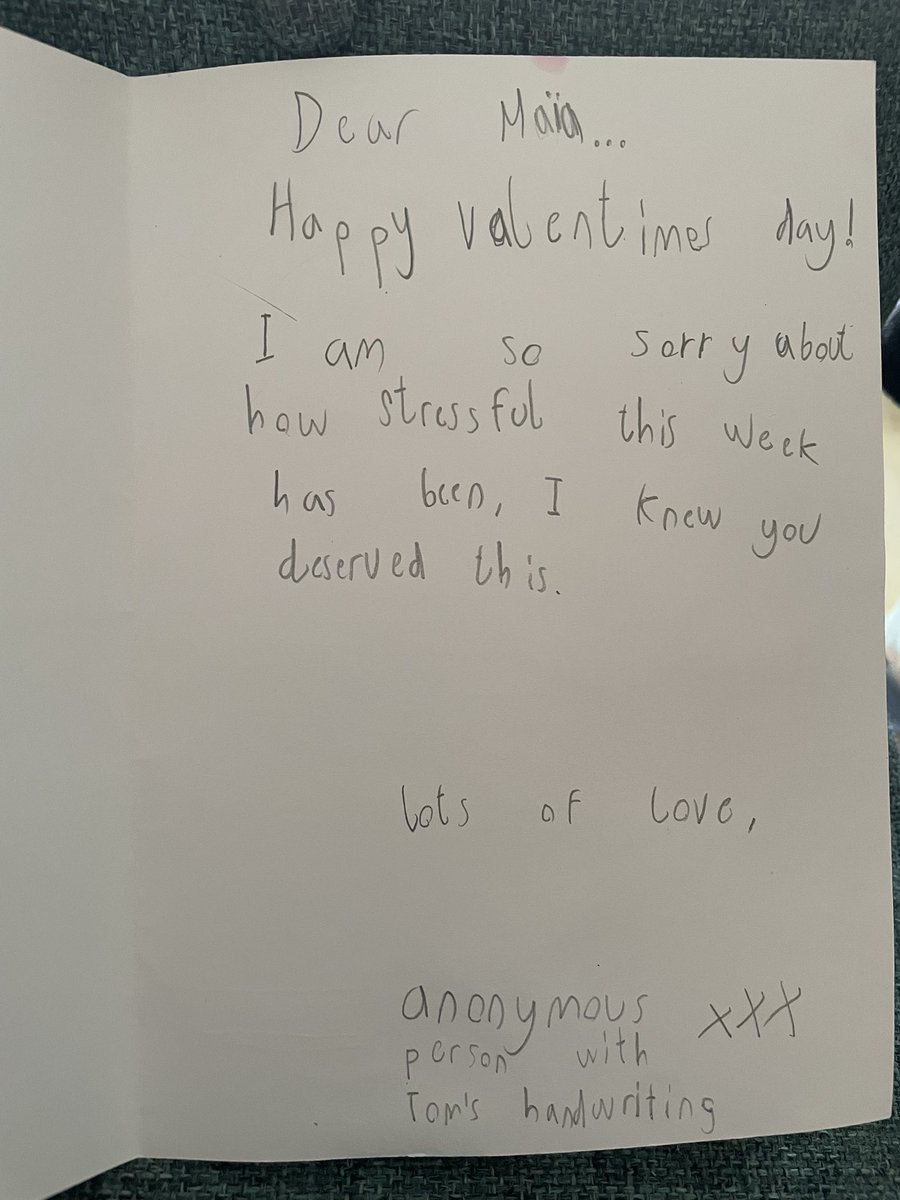 Dear Maïa...
Happy valentimes day!
I am so sorry about
how stressful this week
has been, I knew you
deserved this.
lots of love,
anonymous xxx
person with
Tom's handwriting